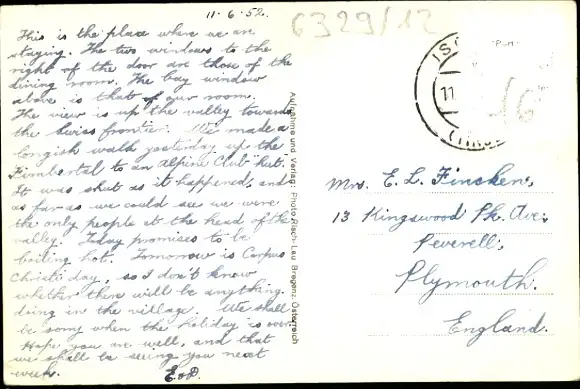 11-6-52.
This is the place where we are
staying. The two windows to the
right of the door are those of the
dining room. The bay window
above is that of our room.
The view is up the valley towards
the Swiss frontier. We made a
longish walk yesterday up the
Fimbertal to an Alpine Club hut.
It was shut as it happened, and
as far as we could see we were
the only people at the head of the
valley. Today promises to be
boiling hot. Tomorrow is Corpus
Christi day, so I don't know
whether there will be anything
doing in the village. We shall
be sorry when the holiday is over.
Hope you are well, and that
we shall be seeing you next
week.
Aufnahme und Verlag: Photo Risch-Lau, Bregenz, Österreich
6329/12
IS
11
16
Mrs. E. L. Fincken,
13 Kingswood Pk. Ave.,
Peverell,
Plymouth.
England.